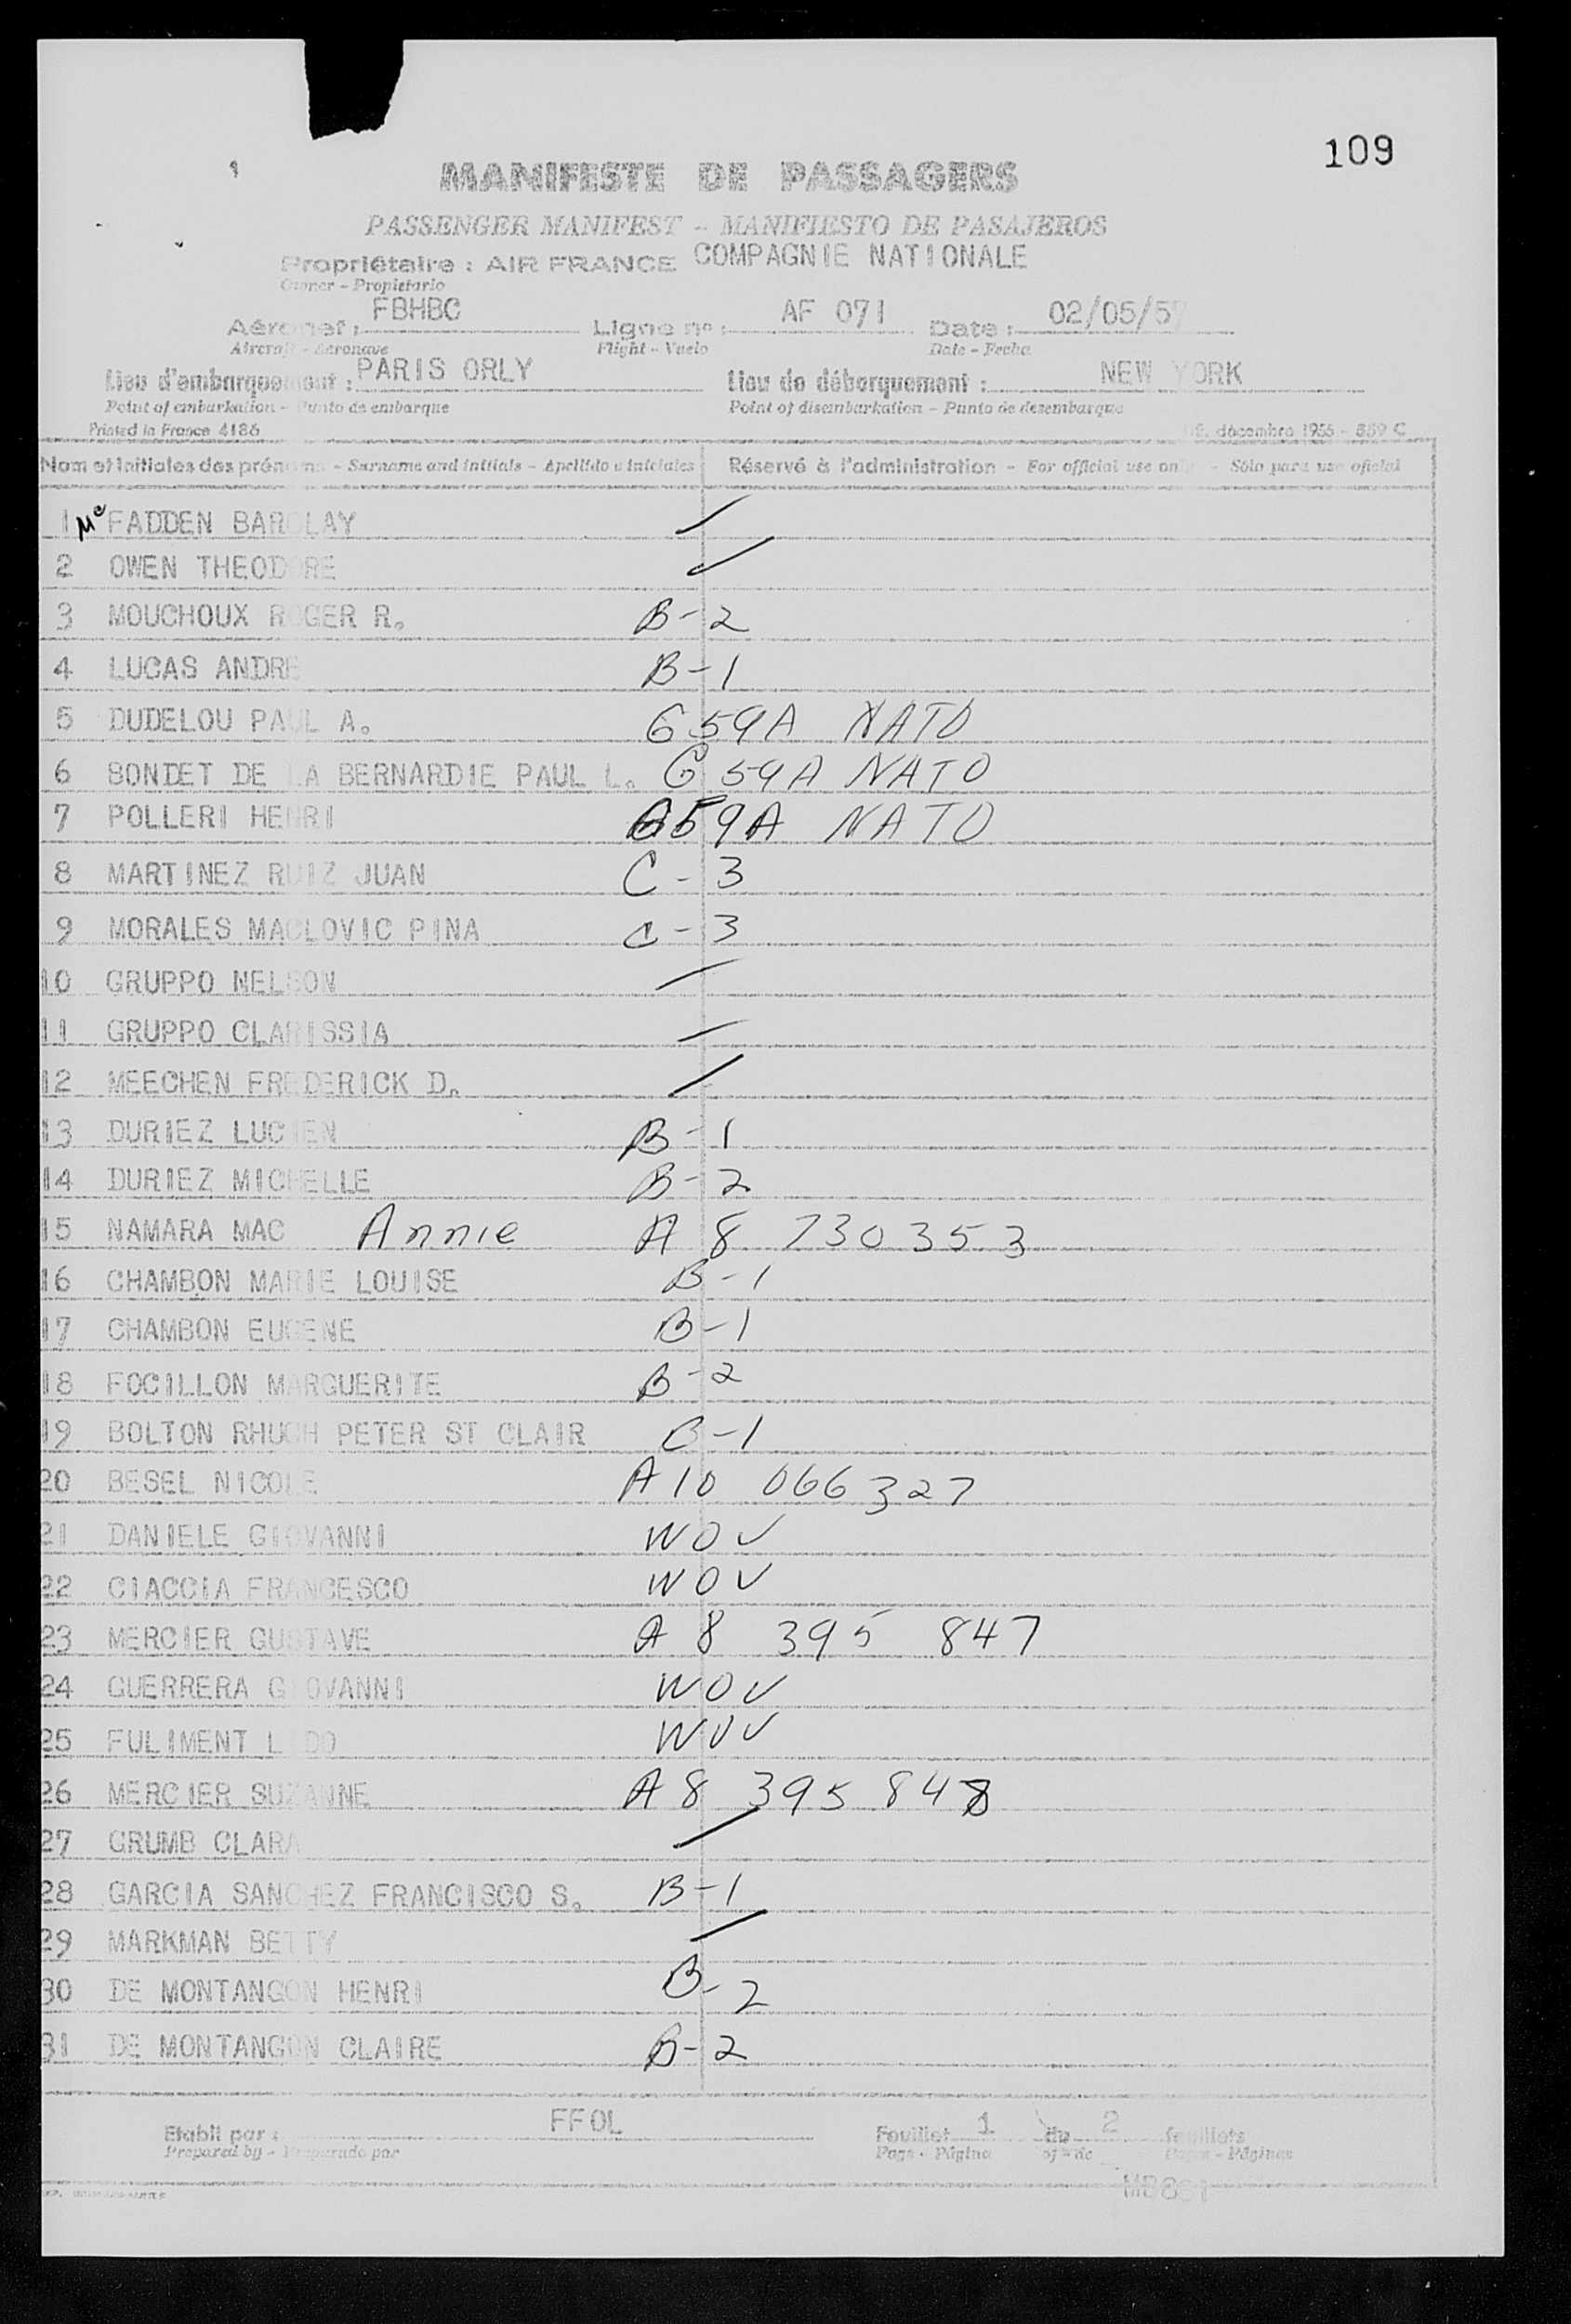 109
MANIFESTE DE PASSAGERS
PASSENGER MANIFEST - MANIFIESTO DE PASAJEROS
Propriétaire : AIR FRANCE COMPAGNIE NATIONALE
Owner - Propietario
Aéronef : FBHBC Ligne no : AF 071 Date : 02/05/57
Aircraft - Aeronave Flight - Vuelo Date - Fecha
Lieu d'embarquement : PARIS ORLY Lieu de débarquement : NEW YORK
Point of embarkation - Punto de embarque Point of disembarkation - Punto de desembarque
Printed in France 4186 décembre 1955 - 859 C
Nom et initiales des prénoms - Surname and initials - Apellido e iniciales Réservé à l'administration - For official use only - Sólo para uso oficial
1 Mc FADDEN BARCLAY
2 OWEN THEODORE
3 MOUCHOUX ROGER R. B-2
4 LUCAS ANDRE B-1
5 DUDELOU PAUL A. G59A NATO
6 BONDET DE LA BERNARDIE PAUL L. G 59A NATO
7 POLLERI HENRI G59A NATO
8 MARTINEZ RUIZ JUAN C-3
9 MORALES MACLOVIC PINA C-3
10 GRUPPO NELSON
11 GRUPPO CLARISSIA
12 MEECHEN FREDERICK D.
13 DURIEZ LUCIEN B-1
14 DURIEZ MICHELLE B-2
15 NAMARA MAC Annie A 8 730353
16 CHAMBON MARIE LOUISE B-1
17 CHAMBON EUGENE B-1
18 FOCILLON MARGUERITE B-2
19 BOLTON RHUGH PETER ST CLAIR B-1
20 BESEL NICOLE A10 066327
21 DANIELE GIOVANNI WOV
22 CIACCIA FRANCESCO WOV
23 MERCIER GUSTAVE A 8 395 847
24 GUERRERA GIOVANNI WOV
25 FULIMENT WOV
26 MERCIER SUZANNE A8 395 848
27 GRUMB CLARA
28 GARCIA SANCHEZ FRANCISCO S. B-1
29 MARKMAN BETTY
30 DE MONTANGON HENRI B-2
31 DE MONTANGON CLAIRE B-2
Etabli par : FFOL Feuillet 1 du 2 feuillets
Prepared by - Preparado por Page - Página of - de Pages - Páginas